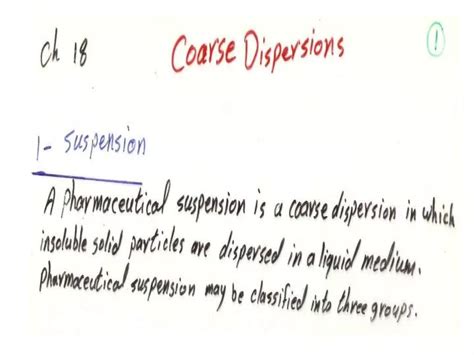 Ch 18 Coarse Dispersions 1
1- Suspension
A pharmaceutical suspension is a coarse dispersion in which
insoluble solid particles are dispersed in a liquid medium.
Pharmaceutical suspension may be classified into three groups.